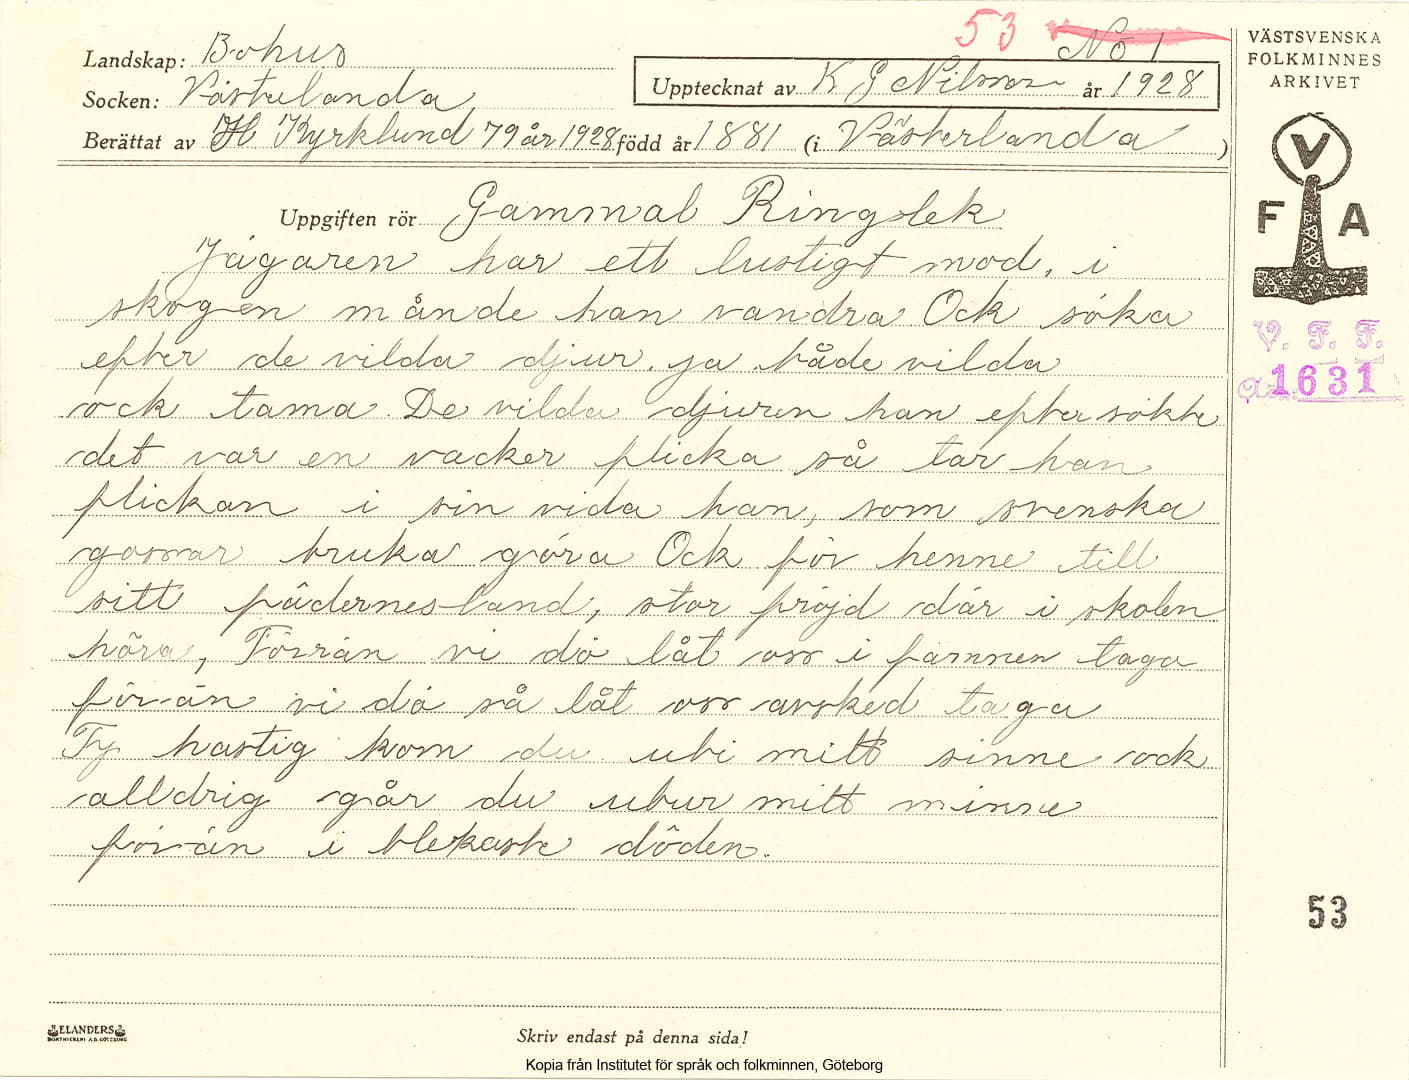 53 No 1
Landskap: Bohus
Socken: Västerlanda
Upptecknat av K G Nilsson år 1928
Berättat av H Kyrklund 79 år 1928 född år 1881 (i Västerlanda)
Uppgiften rör Gammal Ringlek
Jägaren har ett lustigt mod, i
skogen månde han vandra Ock söka
efter de vilda djur. ja både vilda
ock tama. De vilda djuren han efter sökte
det var en vacker flicka så tar han
flickan i sin vida han, som svenska
gossar bruka göra Ock för henne till
sitt fädernesland, stor fröjd där i skolen
höra, Förrän vi dö låt oss i famnen taga
förrän vi dö så låt oss avsked taga
Ty hastig kom du uti mitt sinne ock
alldrig går du utur mitt minne
förrän i blekaste döden.
VÄSTSVENSKA
FOLKMINNES
ARKIVET
V
F A
V. F. F.
1631
53
ELANDERS
BOKTRYCKERI A.B. GÖTEBORG
Skriv endast på denna sida!
Kopia från Institutet för språk och folkminnen, Göteborg